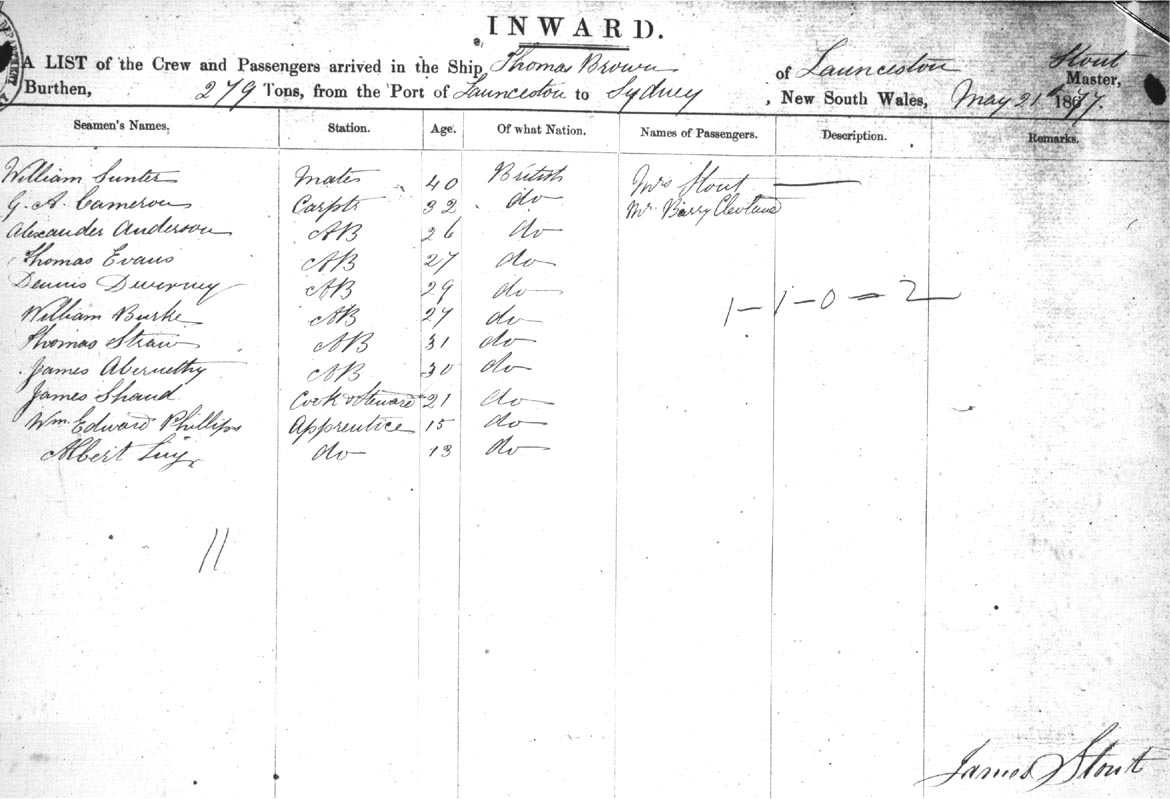 INWARD.
A LIST of the Crew and Passengers arrived in the Ship Thomas Brown of Launceston Stout Master,
Burthen, 279 Tons, from the Port of Launceston to Sydney, New South Wales, May 21st 1877.
Seamen's Names. Station. Age. Of what Nation. Names of Passengers. Description. Remarks.
William Sunter Mate 40 British Mrs Stout
G. A. Cameron Carptr 32 do Mr. Barry Cleveland
Alexander Anderson AB 26 do
Thomas Evans AB 27 do
Dennis AB 29 do
William Burke AB 27 do
1-1-0=2
Thomas Straw AB 31 do
James Abernethy AB 30 do
James Shand Cook & Steward 21 do
Wm. Edward Phillips Apprentice 15 do
Albert do 13 do
11
James Stout